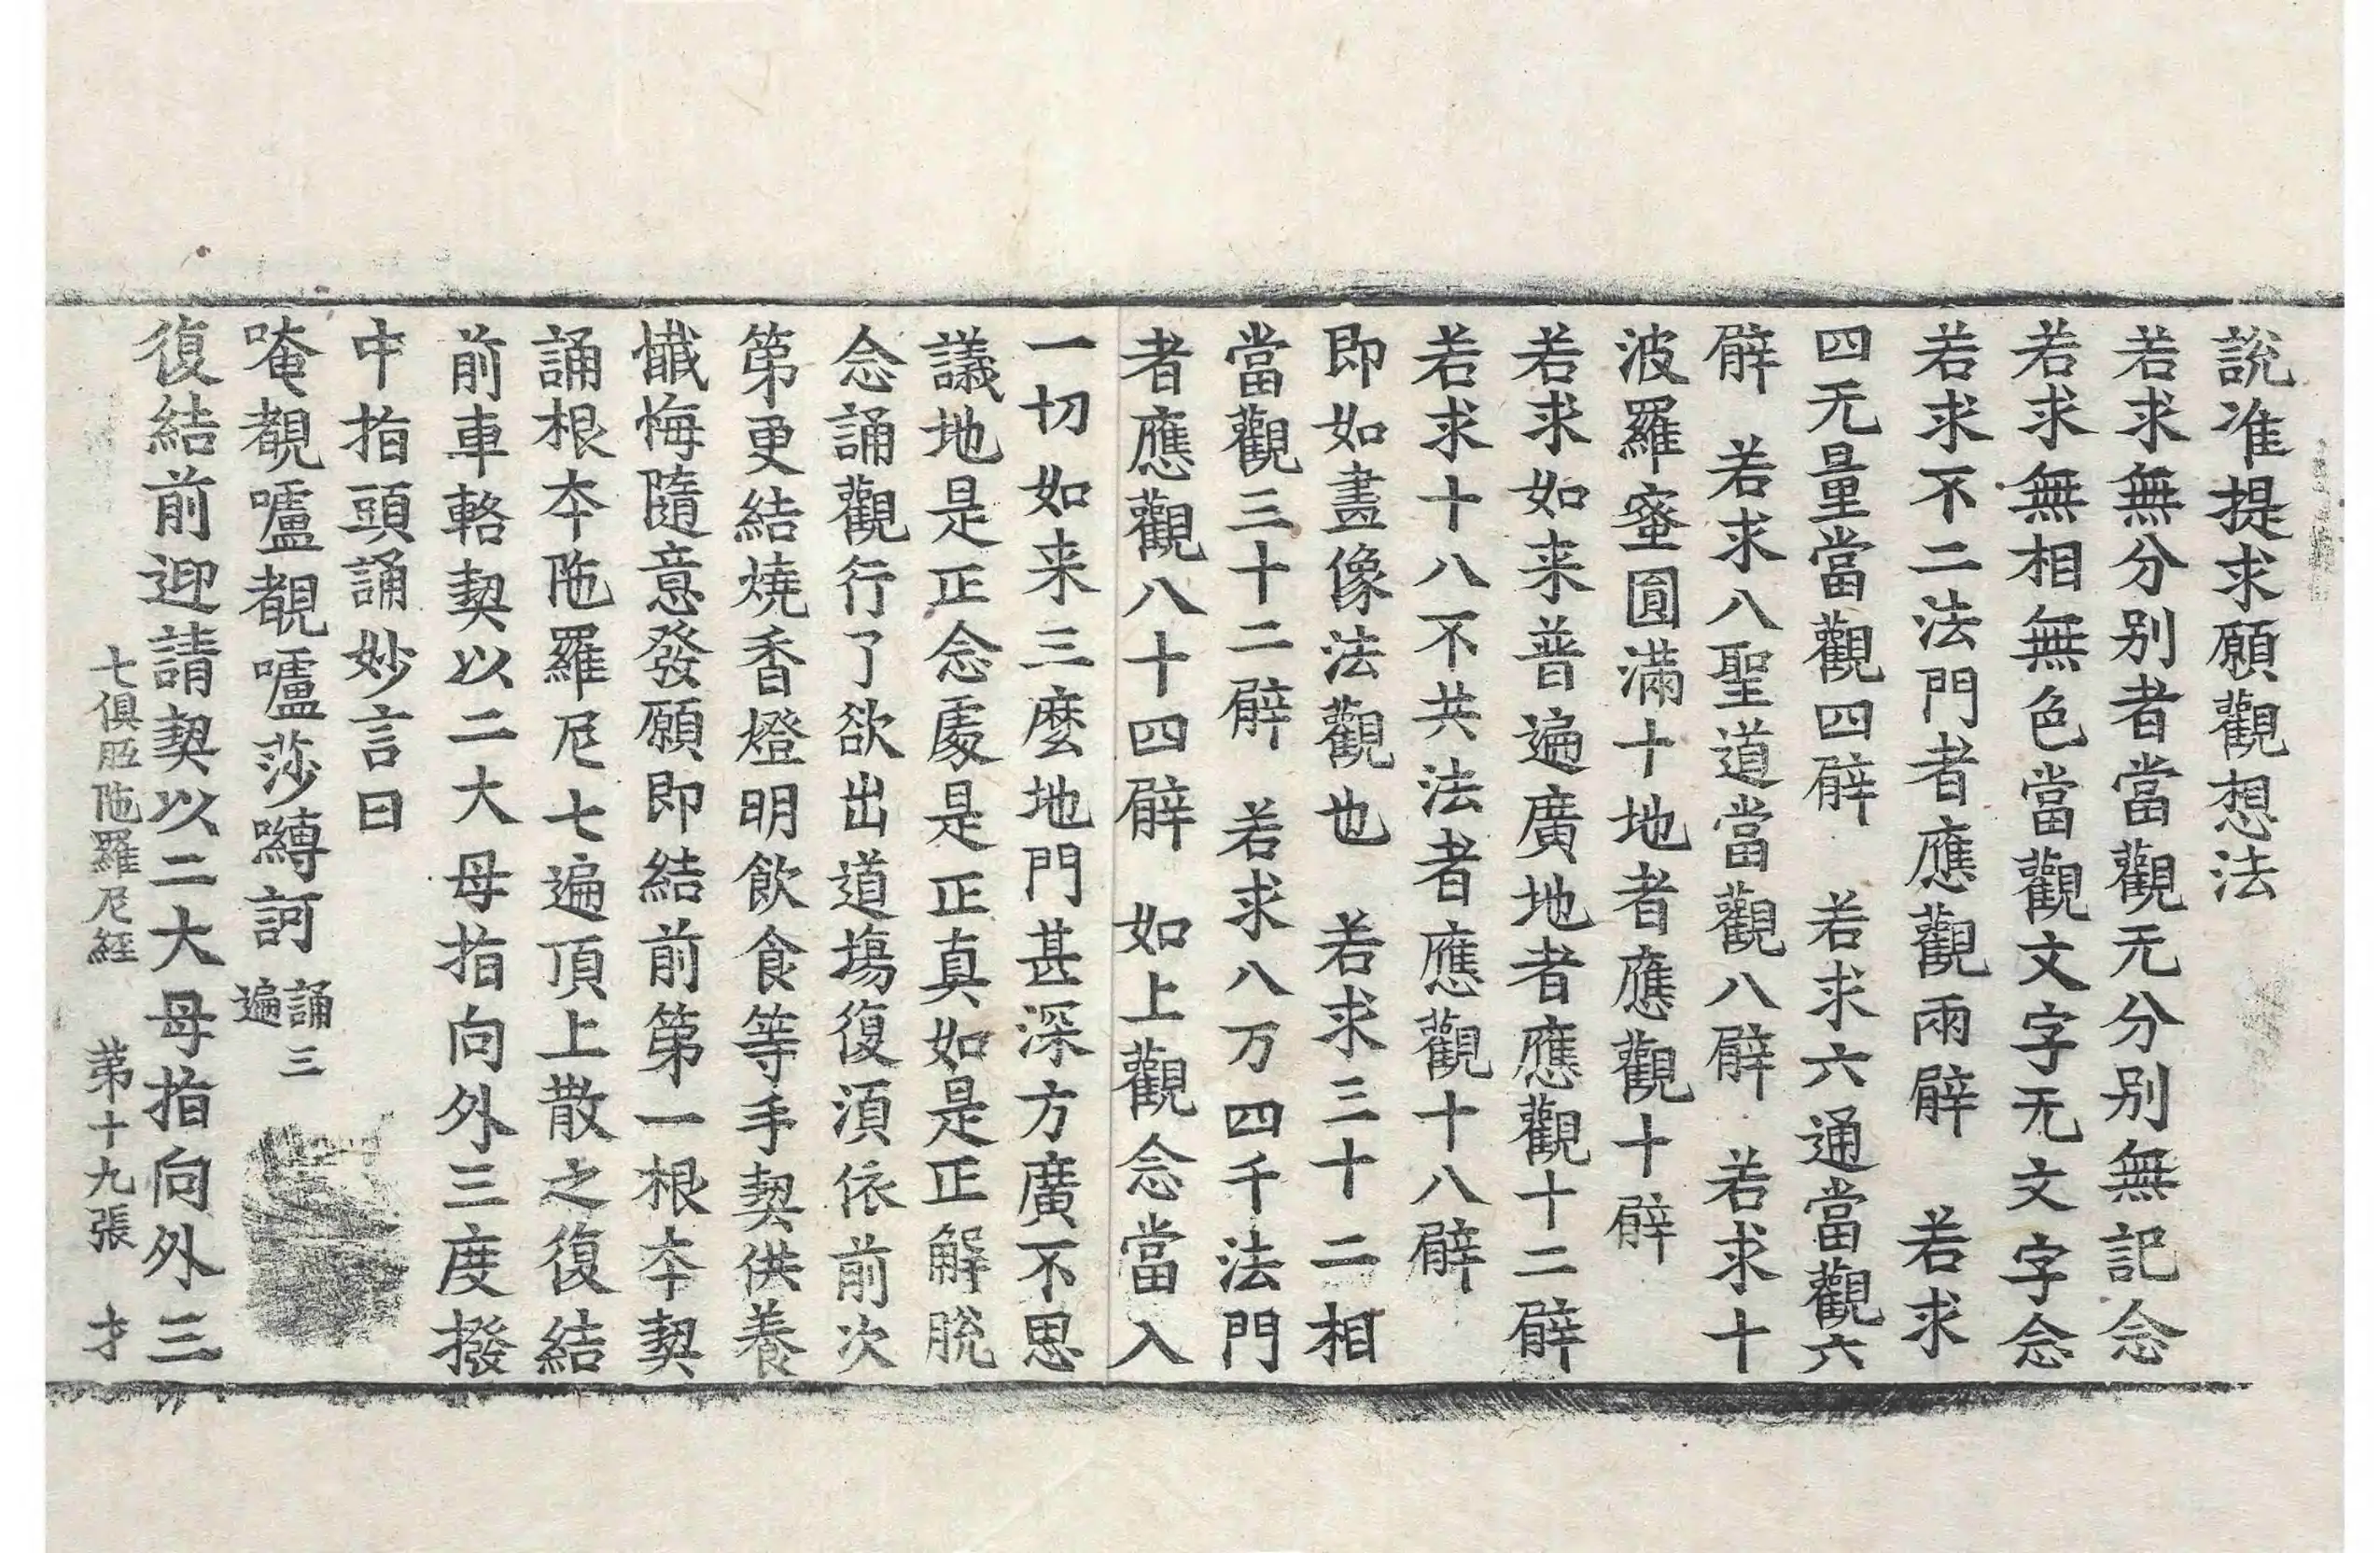 說准提求願觀想法
若求無分別者當觀无分別無記念
若求無相無色當觀文字无文字念
若求不二法門者應觀兩臂　若求
四无量當觀四臂　若求六通當觀六
臂　若求八聖道當觀八臂　若求十
波羅蜜圓滿十地者應觀十臂
若求如来普遍廣地者應觀十二臂
若求十八不共法者應觀十八臂
即如畫像法觀也　若求三十二相
當觀三十二臂　若求八万四千法門
者應觀八十四臂　如上觀念當入
一切如来三麼地門甚深方廣不思
議地是正念處是正真如是正解脫
念誦觀行了欲出道場復須依前次
第更結燒香燈明飲食等手契供養
懺悔隨意發願即結前第一根本契
誦根本陁羅尼七遍頂上散之復結
前車輅契以二大母指向外三度撥
中指頭誦妙言曰
唵覩嚧覩嚧莎嚩訶　誦三遍
復結前迎請契以二大母指向外三
七俱胝陁羅尼經　第十九張　才